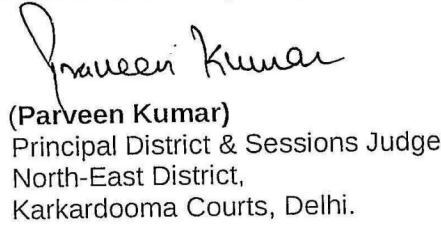 Praveen Kumar
(Parveen Kumar)
Principal District & Sessions Judge
North-East District,
Karkardooma Courts, Delhi.